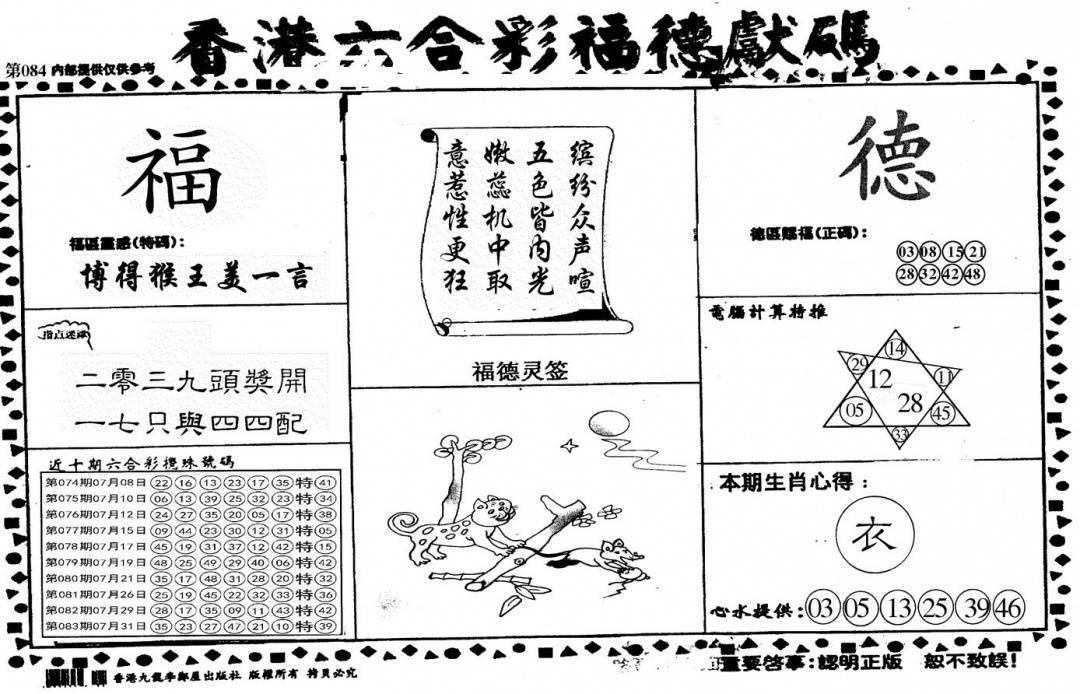 香港六合彩福德獻碼
第084 内部提供仅供参考
福
福區靈感(特碼):
博得猴王美一言
指点迷津
二零三九頭獎開
一七只與四四配
近十期六合彩攪珠號碼
第074期07月08日 22 16 13 23 17 35 特 41
第075期07月10日 06 13 39 25 32 23 特 34
第076期07月12日 24 27 35 20 05 17 特 38
第077期07月15日 09 44 23 30 12 31 特 05
第078期07月17日 45 19 31 37 12 42 特 15
第079期07月19日 48 25 49 29 40 06 特 42
第080期07月21日 35 17 48 31 28 20 特 32
第081期07月26日 25 19 45 22 32 33 特 36
第082期07月29日 28 17 35 09 11 43 特 42
第083期07月31日 35 23 27 47 21 10 特 39
缤纷众声喧
五色皆内光
嫩蕊机中取
意惹性更狂
福德灵签
德
德區賜福(正碼):
03 08 15 21
28 32 42 48
電腦計算特推
14
29 12 11
05 28 45
33
本期生肖心得:
衣
心水提供: 03 05 13 25 39 46
香港九龍李鄭屋出版社 版權所有 拷貝必究
重要啓事:認明正版 恕不致誤!